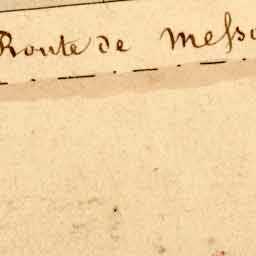 Route de Messi